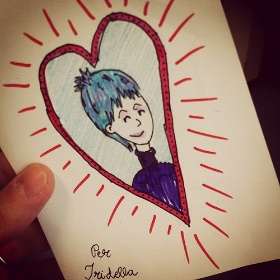 Per
Tridella